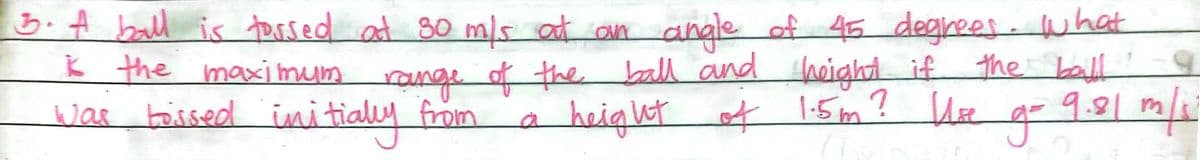 3. A ball is tossed at 30 m/s at an angle of 45 degrees. What
is the maximum range of the ball and height if the ball
was tossed initially from a height of 1.5m? Use g= 9.81 m/s